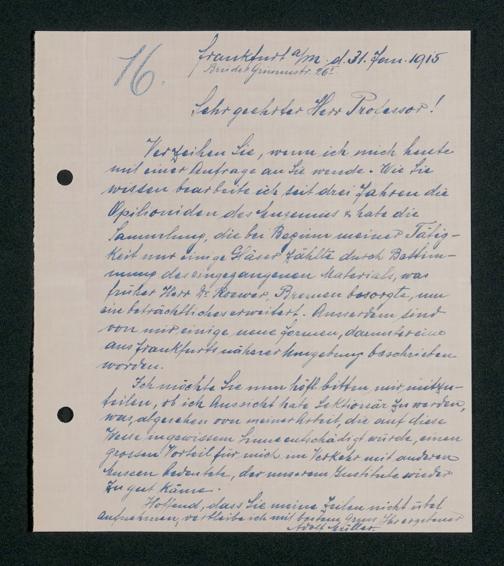 16.
Frankfurt a/M. d. 31. Jan. 1915
Brüder Grimmstr. 26I
Sehr geehrter Herr Professor!
Verzeihen Sie, wenn ich mich heute
mit einer Anfrage an Sie wende. Wie Sie
wissen bearbeite ich seit drei Jahren die
Opilioniden des Museums & habe die
Sammlung, die bei Beginn meiner Tätig-
keit nur einige Gläser zählte durch Bestim-
mung des eingegangenen Materials, was
früher Herr Dr. Roewer, Bremen besorgte, um
ein beträchtliches erweitert. Ausserdem sind
von mir einige neue Formen, darunter eine
aus Frankfurts näherer Umgebung beschrieben
worden.
Ich möchte Sie nun höfl. bitten, mir mitzu-
teilen, ob ich Aussicht habe Sektionär zu werden,
was, abgesehen von meiner Arbeit, die auf diese
Weise in gewissem Sinne entschädigt würde, einen
grossen Vorteil für mich im Verkehr mit anderen
Museen bedeutete, der unserem Institute wieder
zu gut käme.
Hoffend, dass Sie meine Zeilen nicht übel
aufnehmen, verbleibe ich mit bestem Gruss Ihr ergebener
Adolf Müller.